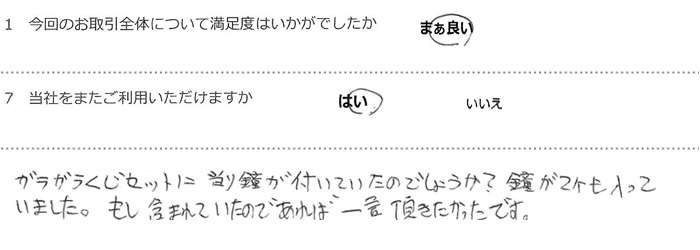 1 今回のお取引全体について満足度はいかがでしたか まぁ良い
7 当社をまたご利用いただけますか はい いいえ
ガラガラくじセットに 当り鐘が付いていたのでしょうか? 鐘が2ケも入って
いました。もし含まれていたのであれば一言頂きたかったです。